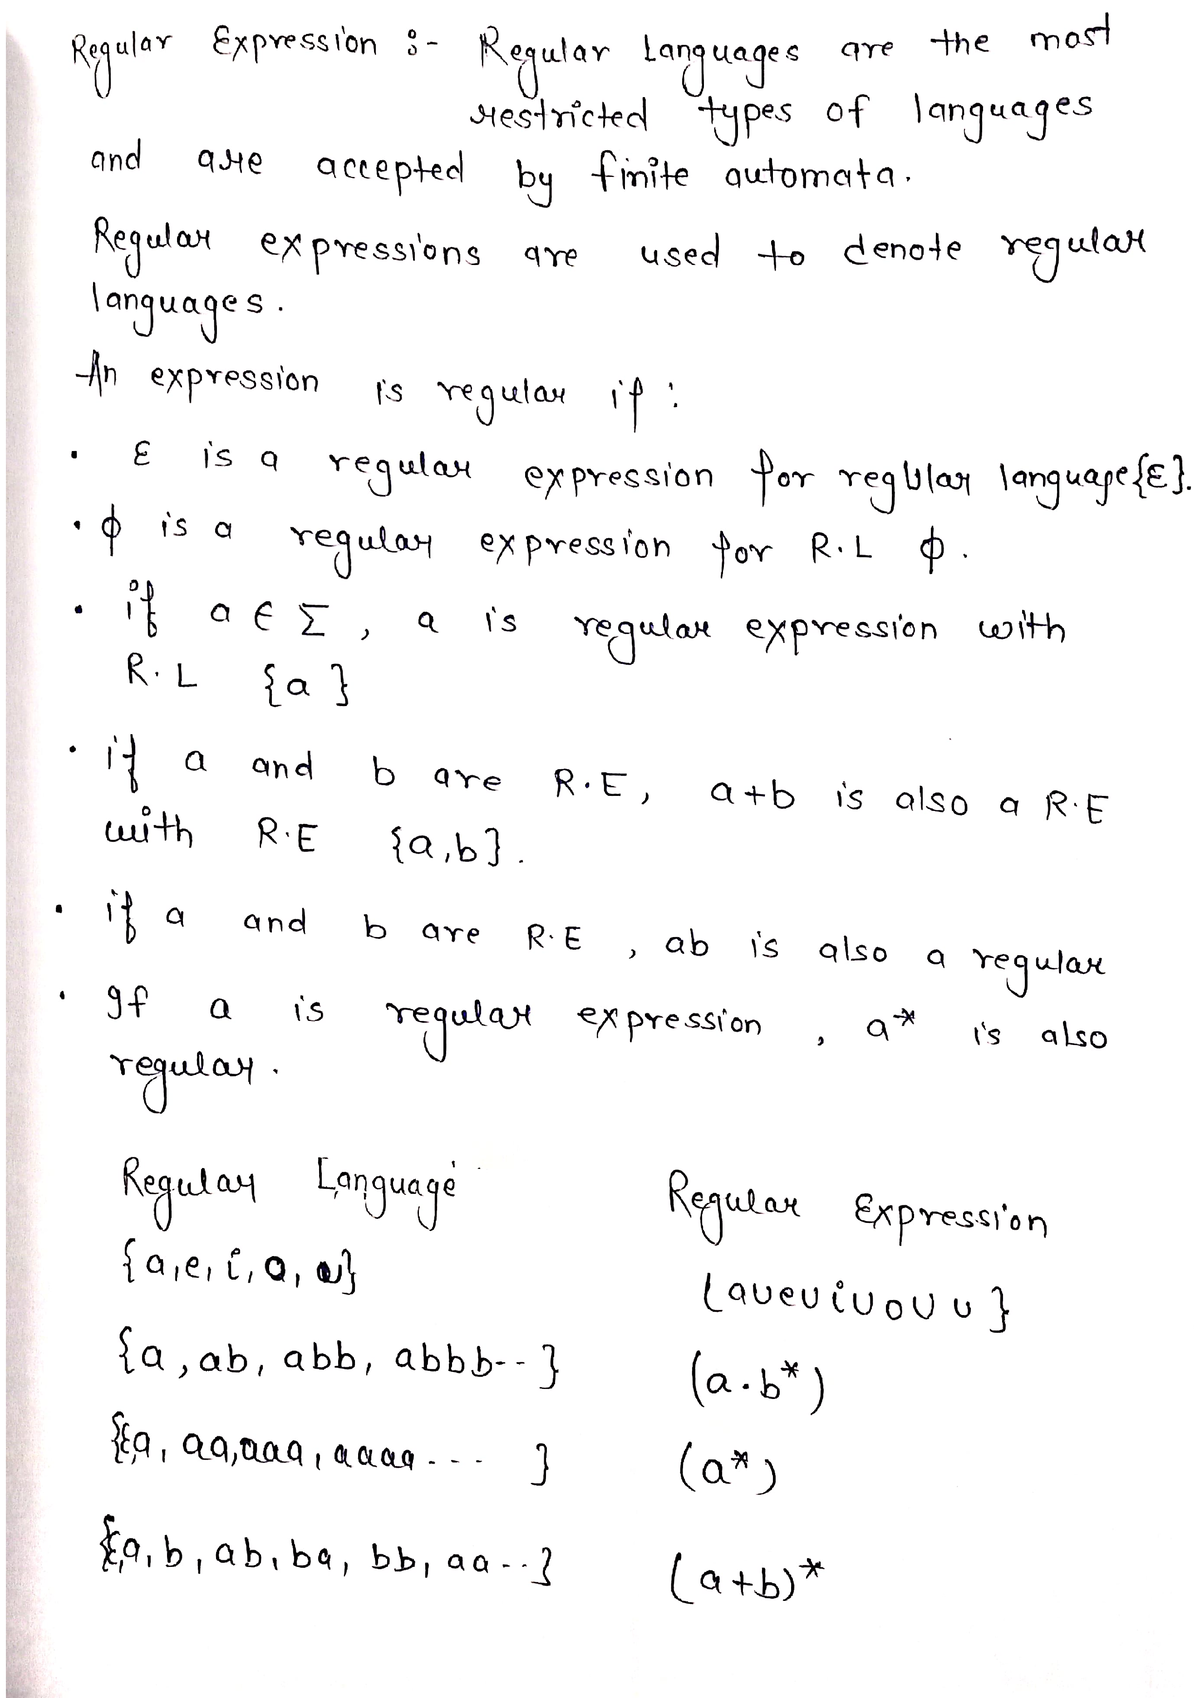 Regular Expression :- Regular Languages are the most
restricted types of languages
and are accepted by finite automata.
Regular expressions are used to denote regular
languages.
An expression is regular if :
• ε is a regular expression for regular language {ε}.
• ϕ is a regular expression for R.L ϕ.
• if a ∈ Σ, a is regular expression with
R.L {a}
• if a and b are R.E, a+b is also a R.E
with R.E {a,b}.
• if a and b are R.E, ab is also a regular
• If a is regular expression, a* is also
regular.
Regular Language Regular Expression
{a,e,i,o,u} {a∪e∪i∪o∪u}
{a, ab, abb, abbb--} (a.b*)
{ε,a, aa,aaa, aaaa---} (a*)
{ε,a,b, ab, ba, bb, aa--} (a+b)*